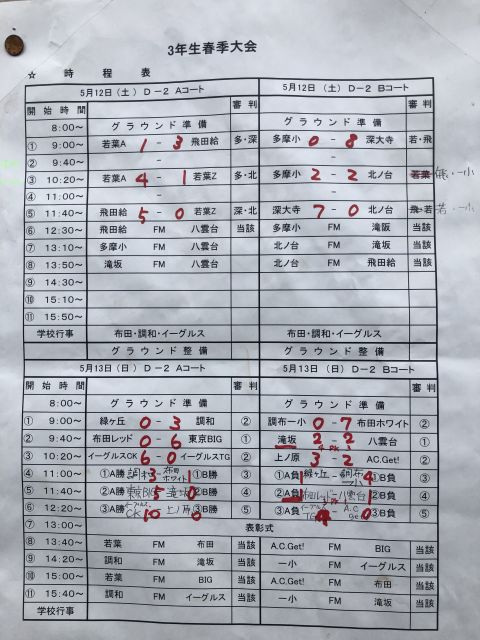 3年生春季大会
☆ 時程表
5月12日（土）D－2 Aコート 5月12日（土）D－2 Bコート
開始時間 審判 審判
8:00～ グラウンド準備 グラウンド準備
① 9:00～ 若葉A 1 - 3 飛田給 多・深 多摩小 0 - 8 深大寺 若・飛
② 9:40～ - -
③ 10:20～ 若葉A 4 - 1 若葉Z 多・北 多摩小 2 - 2 北ノ台 若葉 ・一小
④ 11:00～ - -
⑤ 11:40～ 飛田給 5 - 0 若葉Z 深・北 深大寺 7 - 0 北ノ台 飛・若 若・一小
⑥ 12:30～ 飛田給 FM 八雲台 当該 多摩小 FM 滝阪 当該
⑦ 13:10～ 多摩小 FM 八雲台 北ノ台 FM 滝坂 当該
⑧ 13:50～ 滝坂 FM 八雲台 北ノ台 FM 飛田給 当該
⑨ 14:30～
⑩ 15:10～
⑪ 15:50～
学校行事 布田・調和・イーグルス 布田・調和・イーグルス
グラウンド整備 グラウンド整備
5月13日（日）D－2 Aコート 5月13日（日）D－2 Bコート
開始時間 審判 審判
8:00～ グラウンド準備 グラウンド準備
① 9:00～ 緑ヶ丘 0 - 3 調和 ② 調布一小 0 - 7 布田ホワイト ②
② 9:40～ 布田レッド 0 - 6 東京BIG ① 滝坂 2 - 2 八雲台 ①
PK
③ 10:20～ イーグルスCK 6 - 0 イーグルスTG ② 上ノ原 3 - 2 AC.Get! ②
④ 11:00～ ①A勝 調和 3 - 1 布田ホワイト ①B勝 ③ ①A負 1 緑ヶ丘 - 調布一小 4 ①B負 ③
⑤ 11:40～ ②A勝 東京BIG 5 0 滝坂 ②B勝 ④ ②A負 1 布田レッド - 八雲台 1 ②B負 ④
⑥ 12:20～ ③A勝 イーグルスCK 10 0 上ノ原 ③B勝 ⑤ ③A負 イーグルスTG 4 - 0 A.C Get! ③B負 ⑤
⑦ 13:00～ 表彰式
⑧ 13:40～ 若葉 FM 布田 当該 A.C.Get! FM BIG 当該
⑨ 14:20～ 調和 FM 滝坂 当該 一小 FM イーグルス 当該
⑩ 15:00～ 若葉 FM BIG 当該 A.C.Get! FM 布田 当該
⑪ 15:40～ 調和 FM イーグルス 当該 一小 FM 滝坂 当該
学校行事 グラウンド整備 グラウンド整備